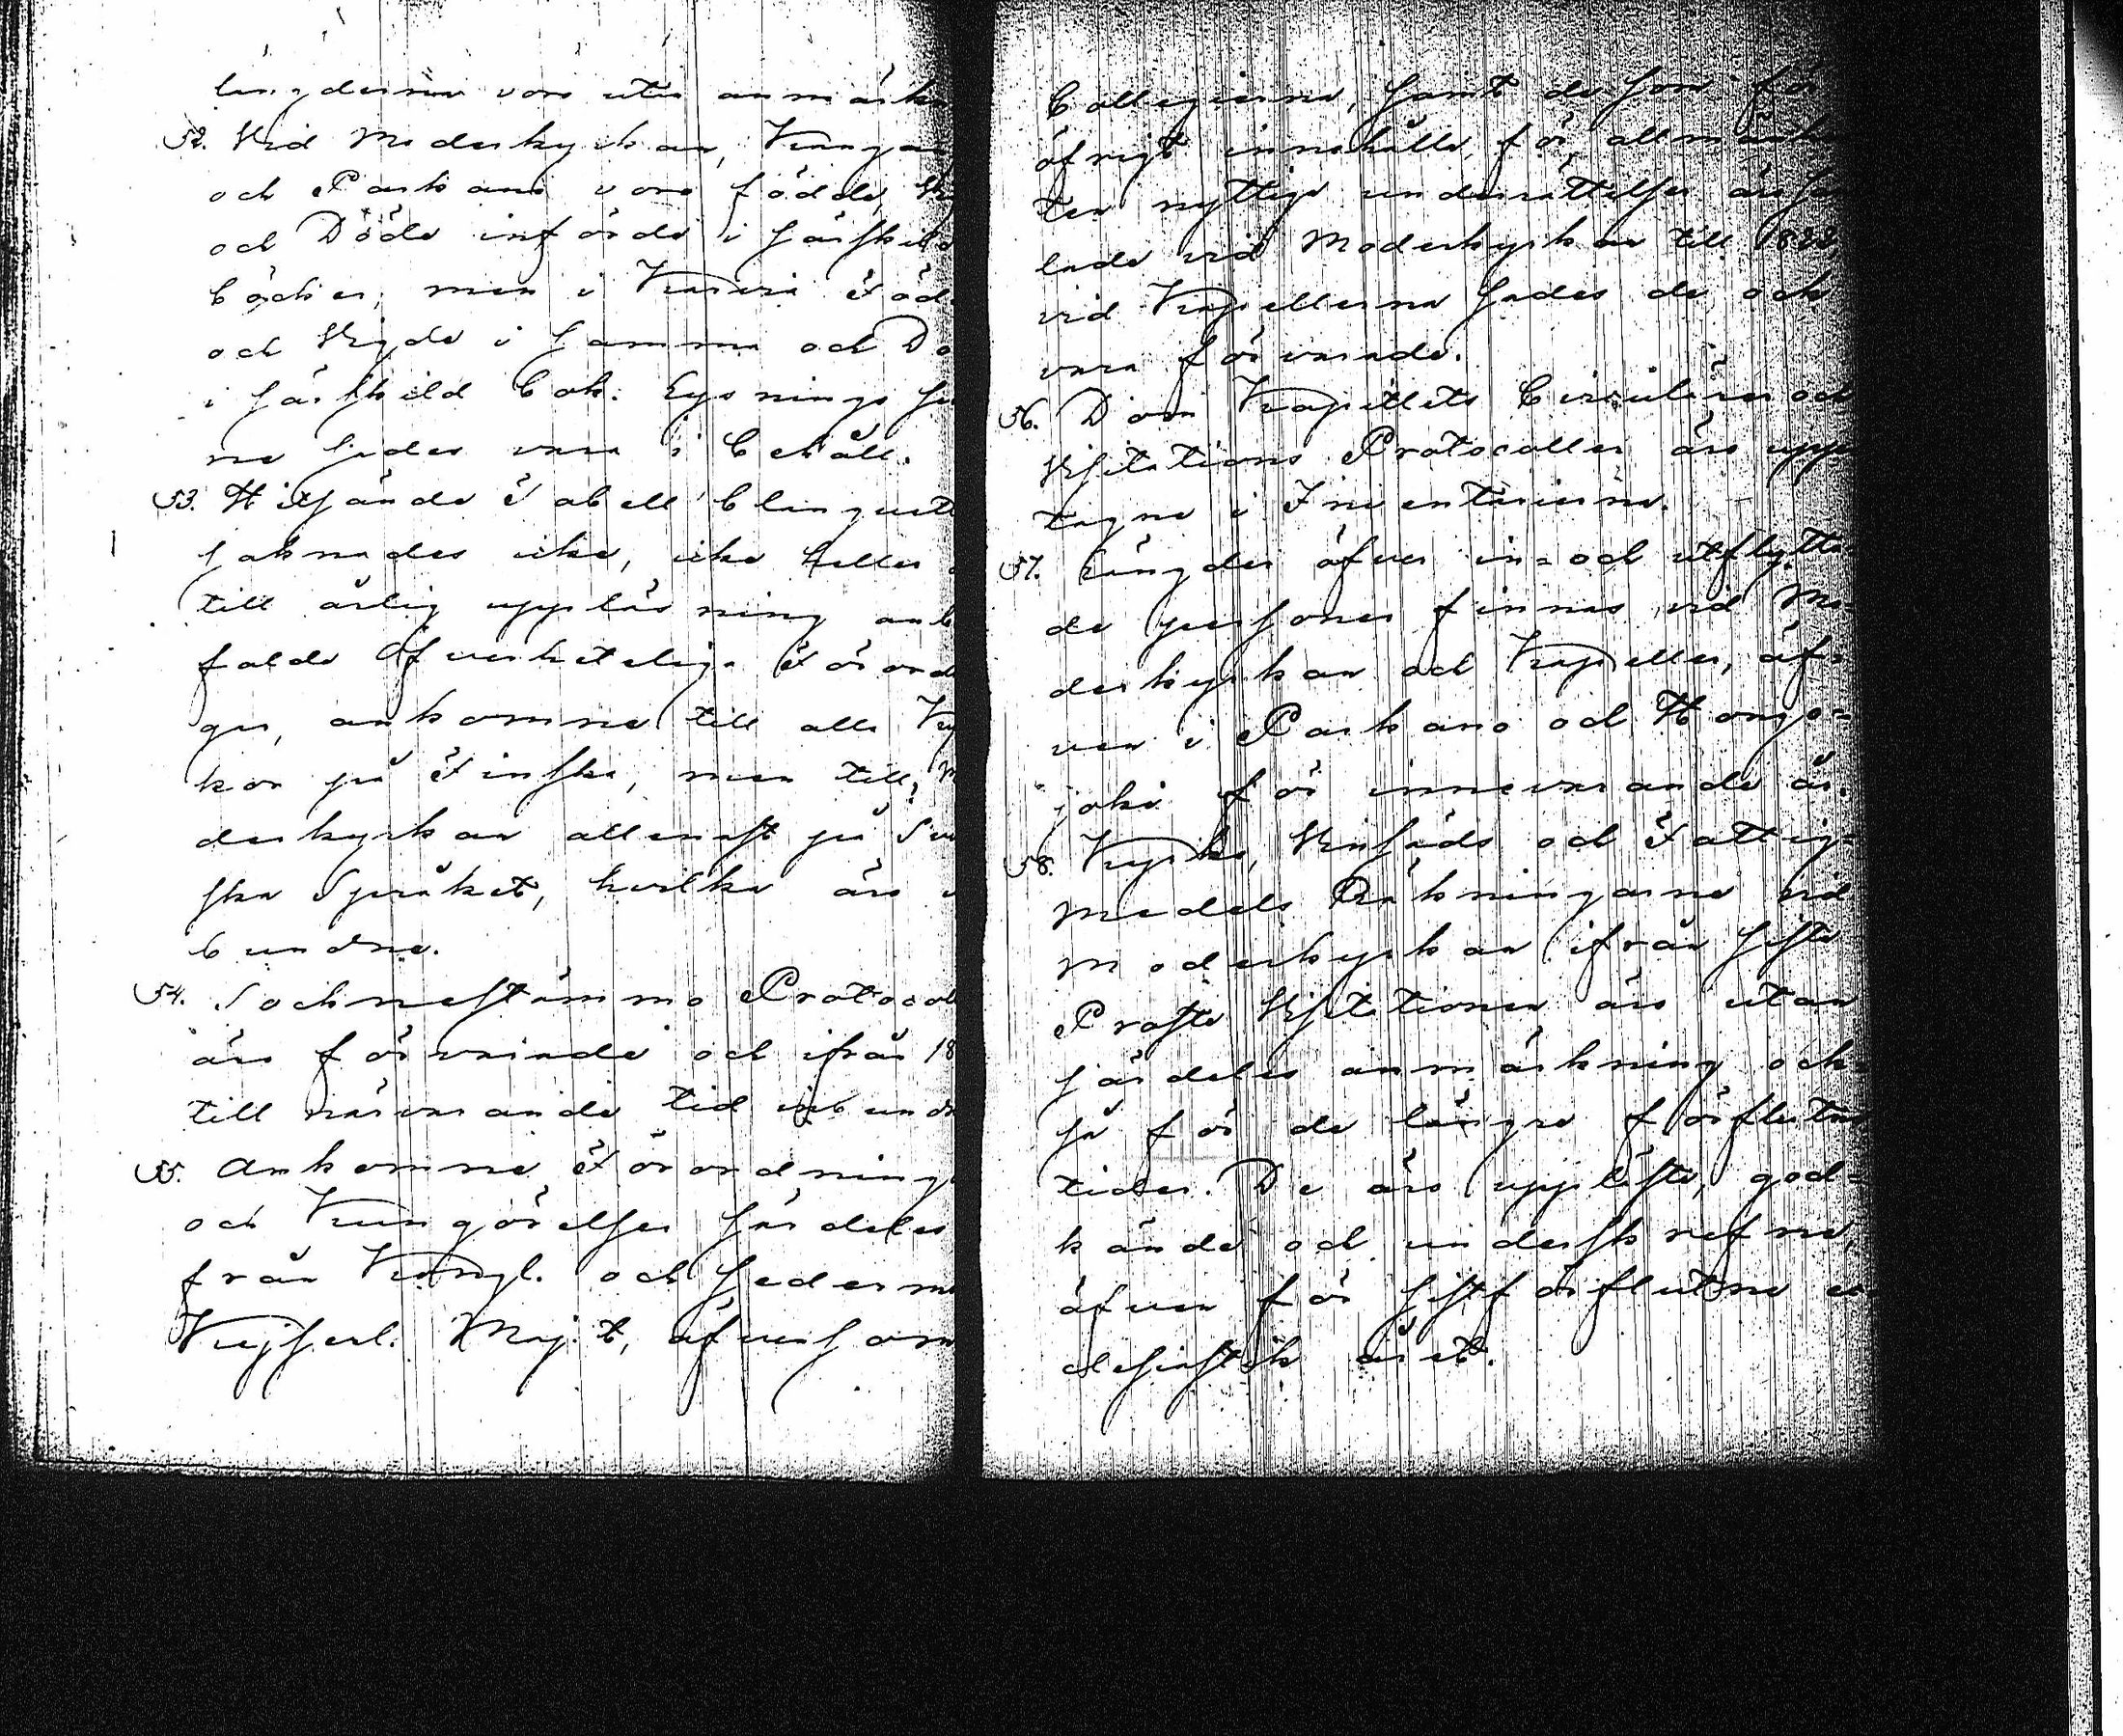 längderna voro utan anmärk
52. Vid Moderkyrkan, Kangas
och Parkano voro födde, Vig
och Döde införde i särskild
böcker, men i Karvia Föd
och Vigde i samma och Dö
i särskild bok. Lysnings
ne sades vara i behåll.
53. Hitsände Tabell blanquett
saknades icke, icke heller
till årlig uppläsning anb
falde Öfverhetelige Förord
gar, ankomne till alla Kyr
kor på Finska, men till M
derkyrkan allenast på Sve
ska Språket, hvilka äro
bundne.
54. Socknestämmo Protocol
äro förvarade och ifrån 18
till närvarande tid inbund
55. Ankomne Förordning
och Kungörelser särdeles
från Kongl. och sedermer
Kejserl. Maj:t, äfvensom
Collegierna, samt de som för
öfrigt innehålla, för allmänhe
ten nyttige underrättelser äro sam
lade vid Moderkyrkan till 1822,
vid Kapellerna sades de och
vara förvarade.
56. Dom Kapitlets Circulärer och
Visitations Protocoller äro upp-
tagne i Inventarierna.
57. Längder öfver in= och utflyttan
de personer finnas vid Mo-
derkyrkan och Kapeller, äf-
ven i Parkano och Hongo=
joki för innevarande år.
58. Kyrko, Vinsäds och Fattig-
medels Räkningarne vid
Moderkyrkan ifrån sista
Prosts Visitationen äro utan
särdeles anmärkning, ock-
så för de längre förflutna
tider. De äro uppläste, god-
kände och underskrefne,
äfven för sistförflutne ec
clesiastik året.